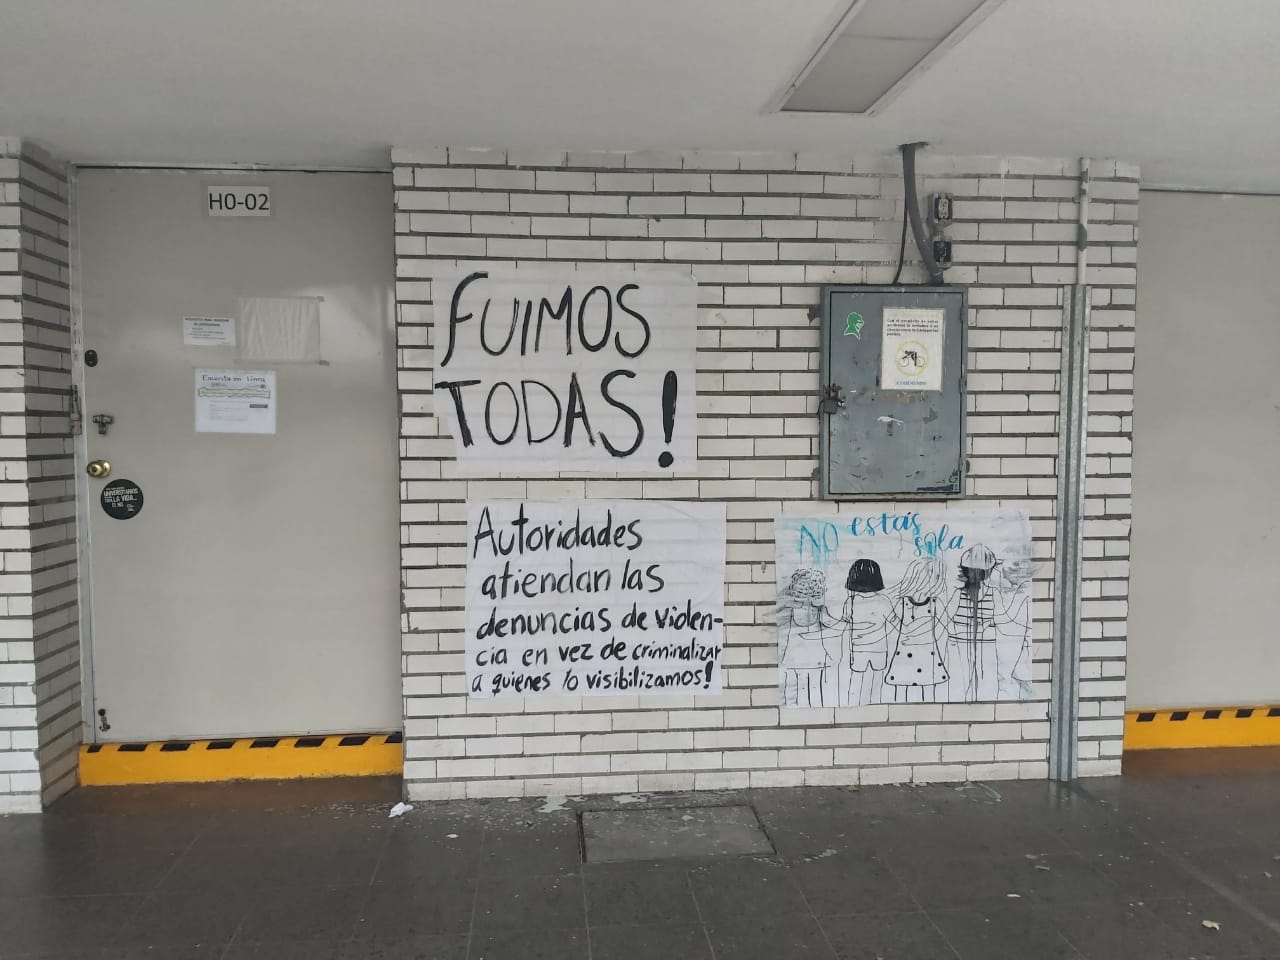 H0-02
Encuesta en línea
UNIVERSITARIOS
LA VIDA...
FUIMOS
TODAS!
Autoridades
atiendan las
denuncias de violen-
cia en vez de criminalizar
a quienes lo visibilizamos!
NO estás
sola